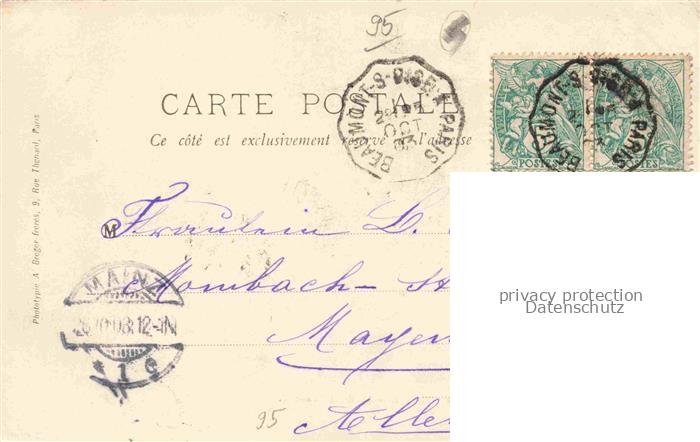 95
CARTE POSTALE
Ce côté est exclusivement réservé à l'adresse
BEAUMONT-S-OISE A PARIS
OCT
BEAUMONT-S-OISE A PARIS
POSTES
POSTES
Phototypie A Breger frères, 9, Rue Thenard, Paris
M
Fräulein L.
Mombach-
Mayen
Alle
MAINZ
12-1N
* 1 c
95
privacy protection
Datenschutz